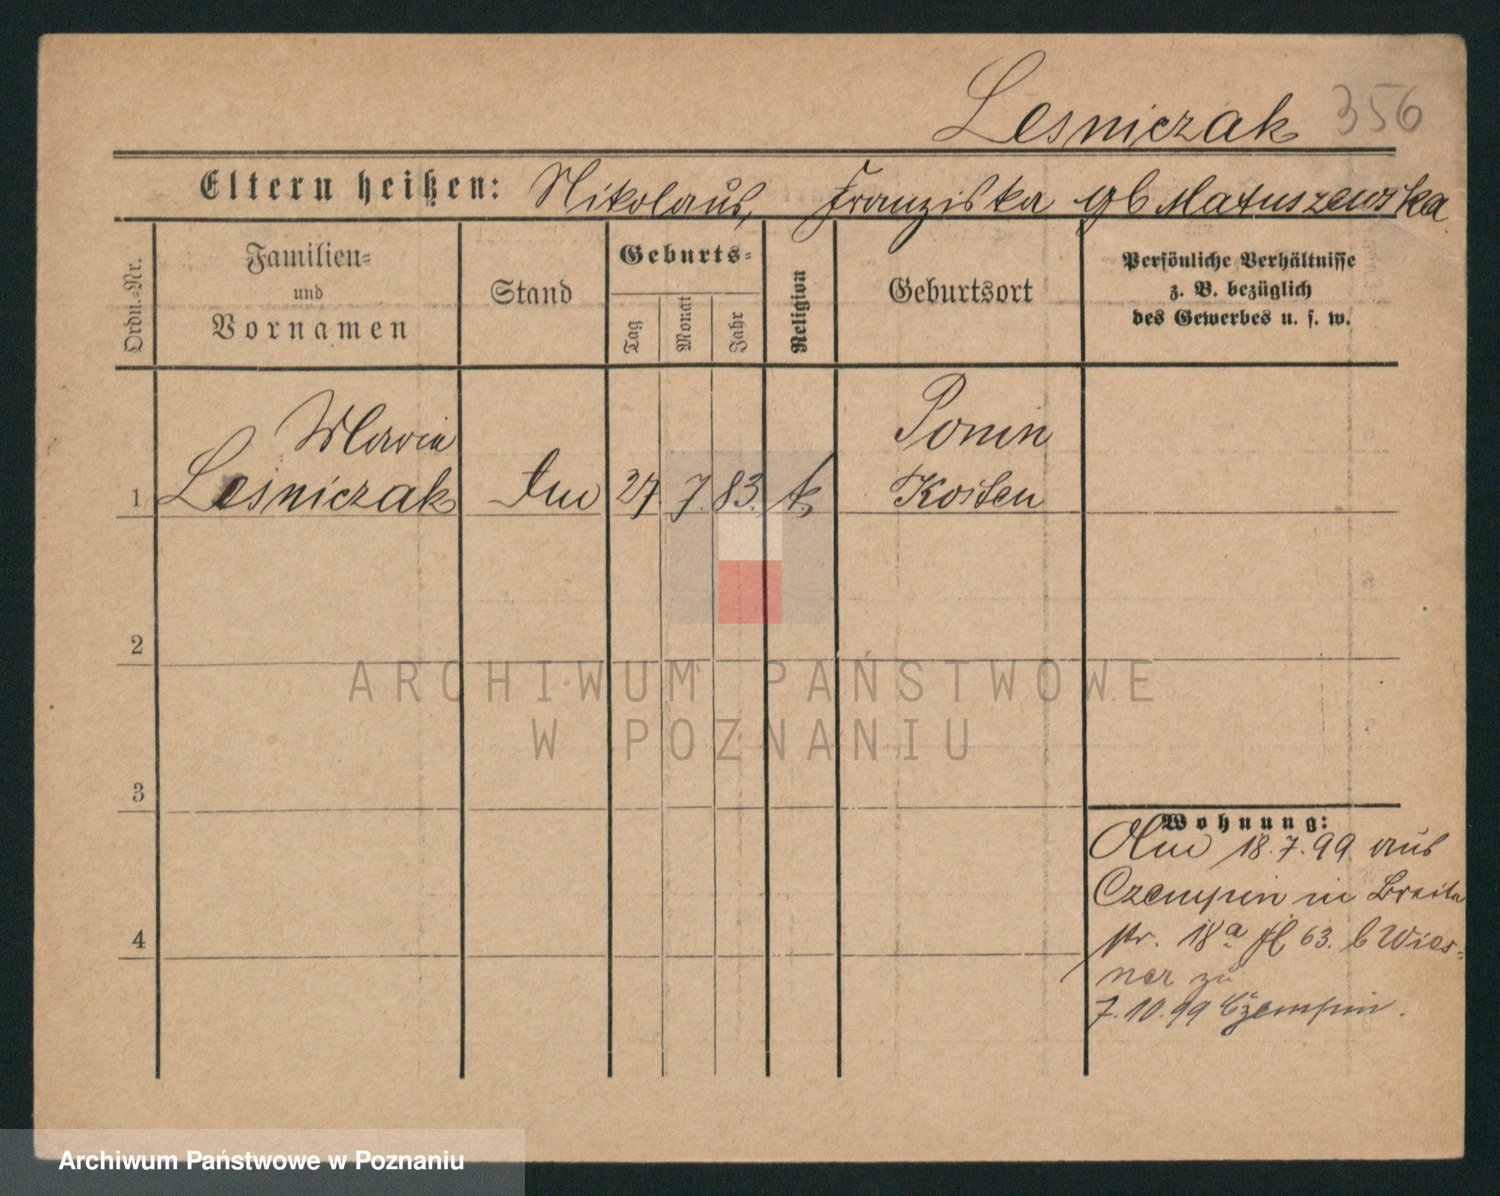 Lesniczak 356
Eltern heißen: Nikolaus, Franziska gb Matuszewska
Ordn.=Nr.
Familien=
und
Vornamen
Stand
Geburts=
Tag
Monat
Jahr
Religion
Geburtsort
Persönliche Verhältnisse
z. B. bezüglich
des Gewerbes u. s. w.
Maria
Ponin
1 Lesniczak 27 7. 83. k Kosten
2
ARCHIWUM PAŃSTWOWE
W POZNANIU
3
Wohnung:
18.7.99 aus
Czempin in Breite
str. 18a 63. b Wies=
4
ner zu
7.10.99 Czempin.
Archiwum Państwowe w Poznaniu